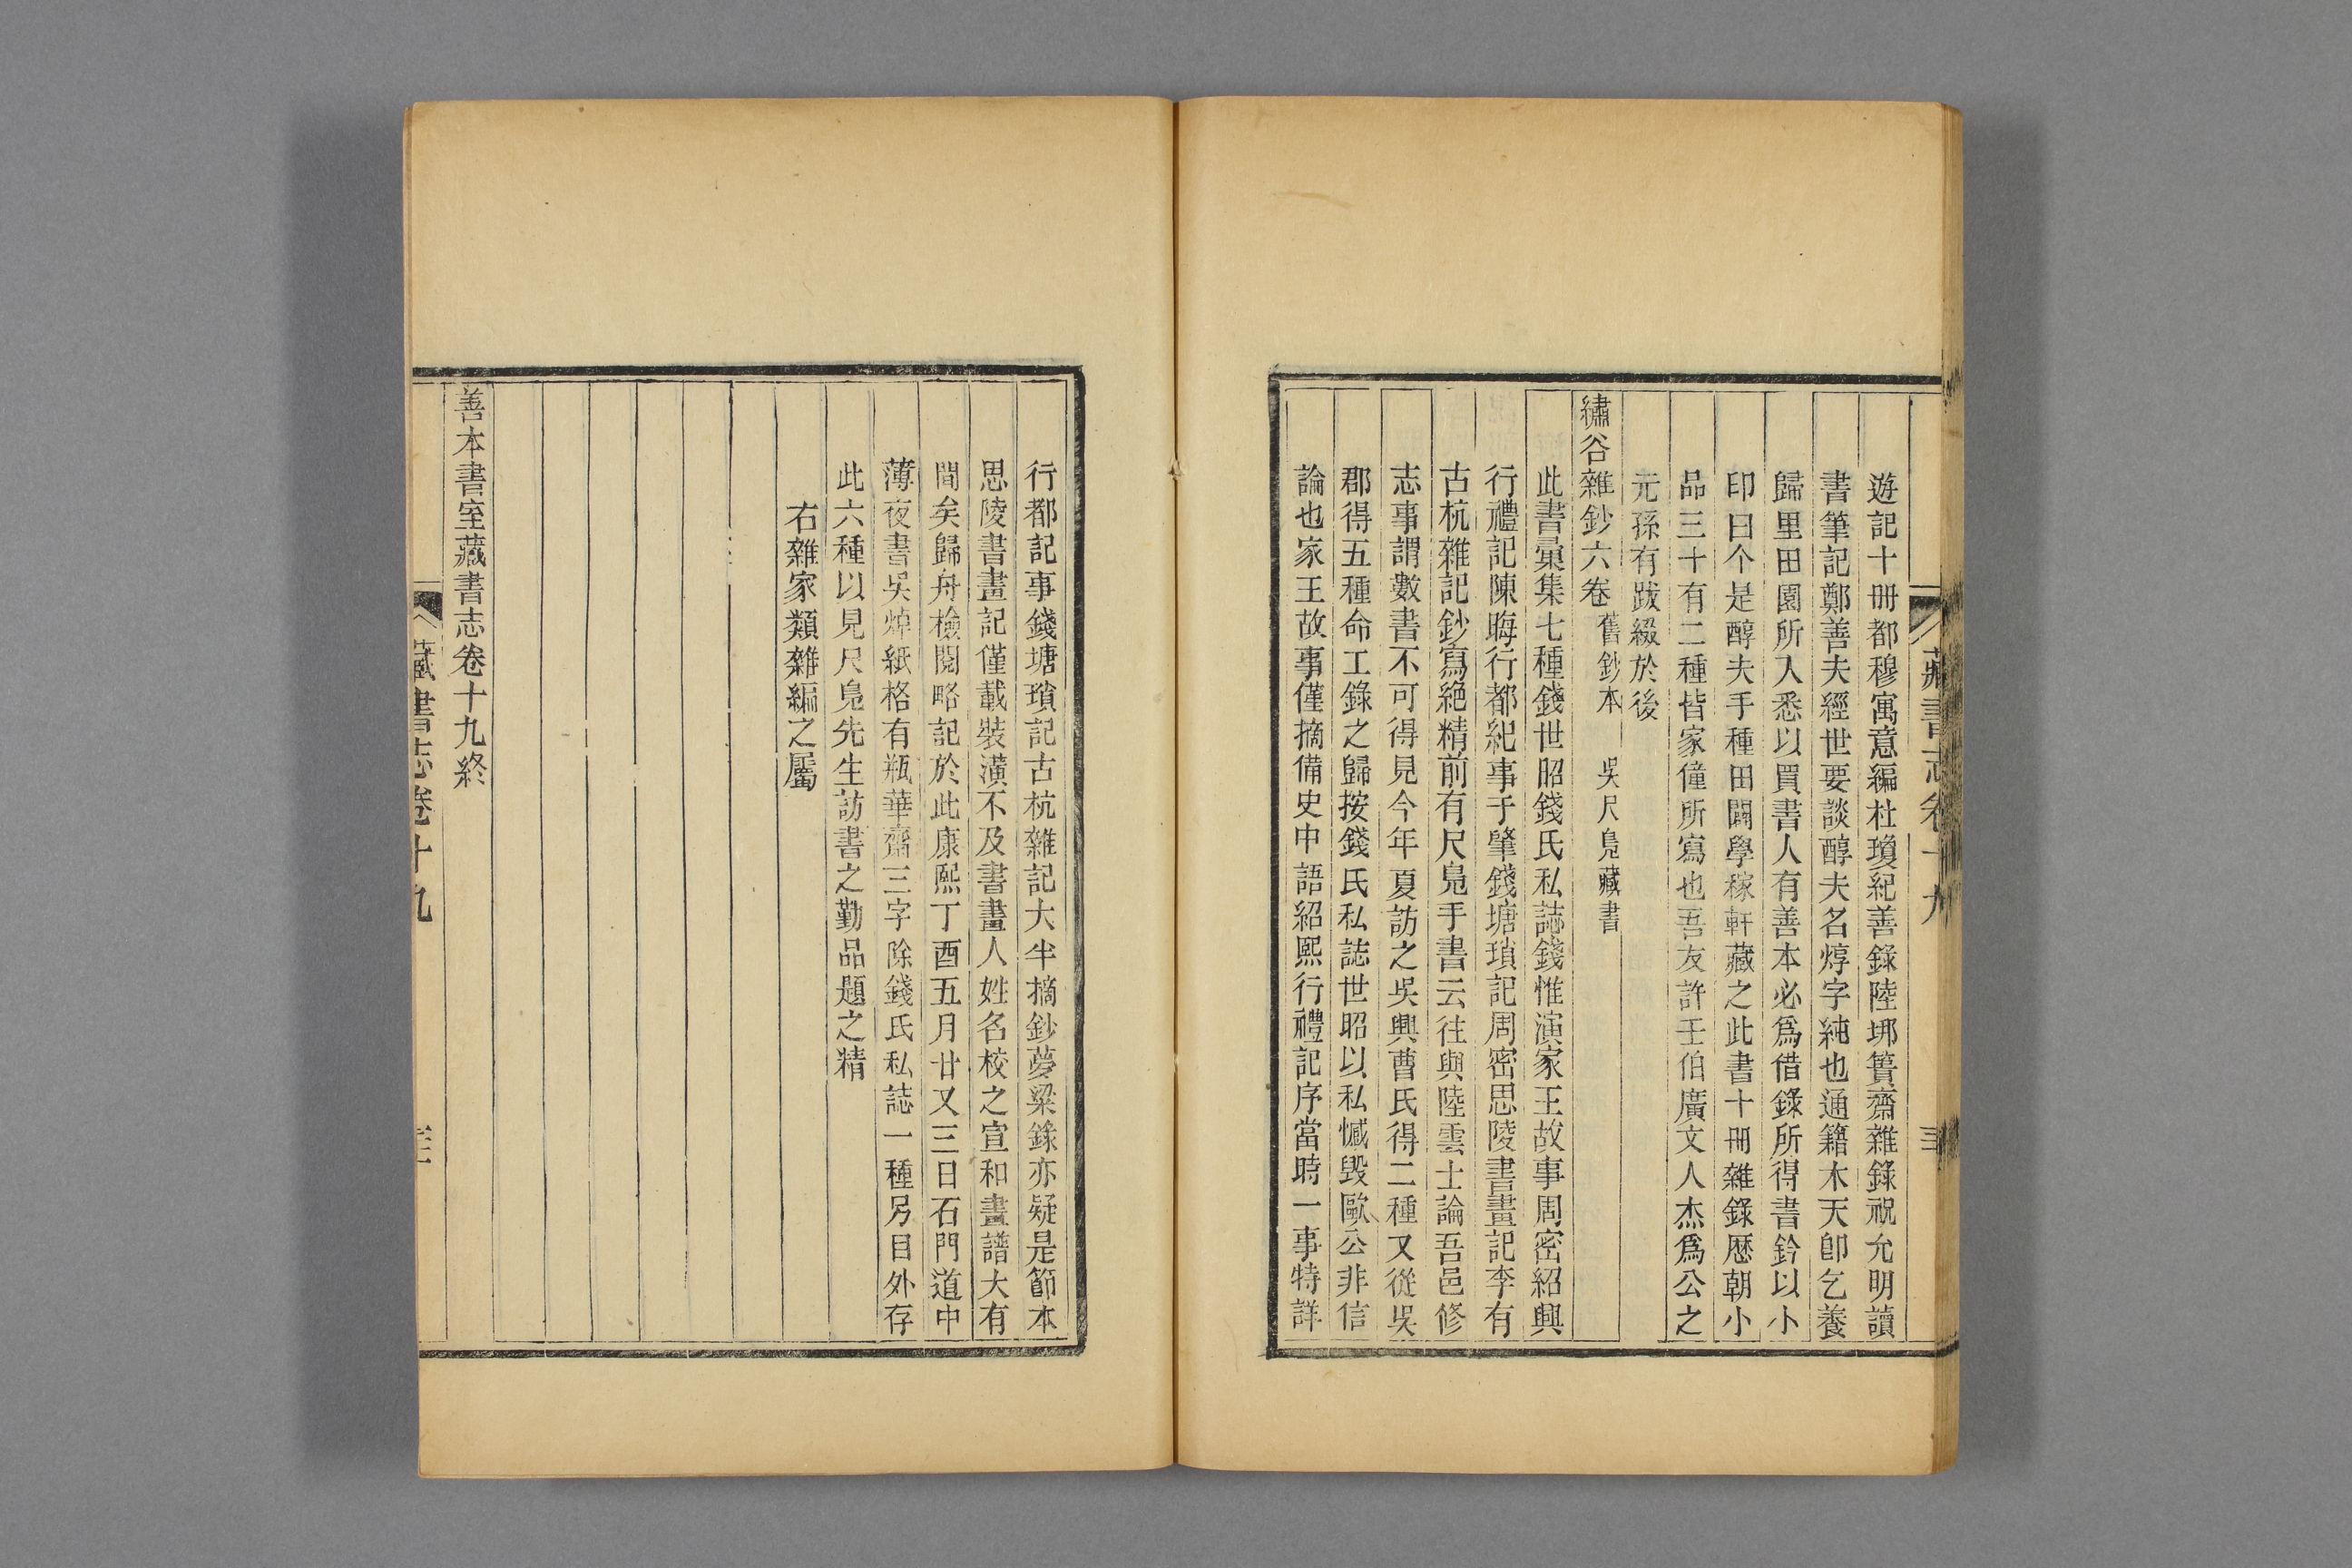 遊記十冊都穆寓意編杜瓊紀善錄陸垹簣齋雜錄祝允明讀
書筆記鄭善夫經世要談醇夫名焞字純也通籍木天卽乞養
歸里田園所入悉以買書人有善本必爲借錄所得書鈐以小
印曰个是醇夫手種田闢學稼軒藏之此書十冊雜錄歷朝小
品三十有二種皆家僮所寫也吾友許壬伯廣文人杰爲公之
元孫有跋綴於後
繡谷雜鈔六卷 舊鈔本 吳尺鳧藏書
此書彙集七種錢世昭錢氏私誌錢惟演家王故事周密紹興
行禮記陳晦行都紀事于肇錢塘瑣記周密思陵書畫記李有
古杭雜記鈔寫絕精前有尺鳧手書云往與陸雲士論吾邑修
志事謂數書不可得見今年夏訪之吳興曹氏得二種又從吳
郡得五種命工錄之歸按錢氏私誌世昭以私憾毀歐公非信
論也家王故事僅摘備史中語紹熙行禮記序當時一事特詳
行都記事錢塘瑣記古杭雜記大半摘鈔夢粱錄亦疑是節本
思陵書畫記僅載裝潢不及書畫人姓名校之宣和畫譜大有
間矣歸舟檢閱略記於此康熙丁酉五月廿又三日石門道中
薄夜書吳焯紙格有瓶華齋三字除錢氏私誌一種另目外存
此六種以見尺鳧先生訪書之勤品題之精
右雜家類雜編之屬
善本書室藏書志卷十九終
藏書志卷十九